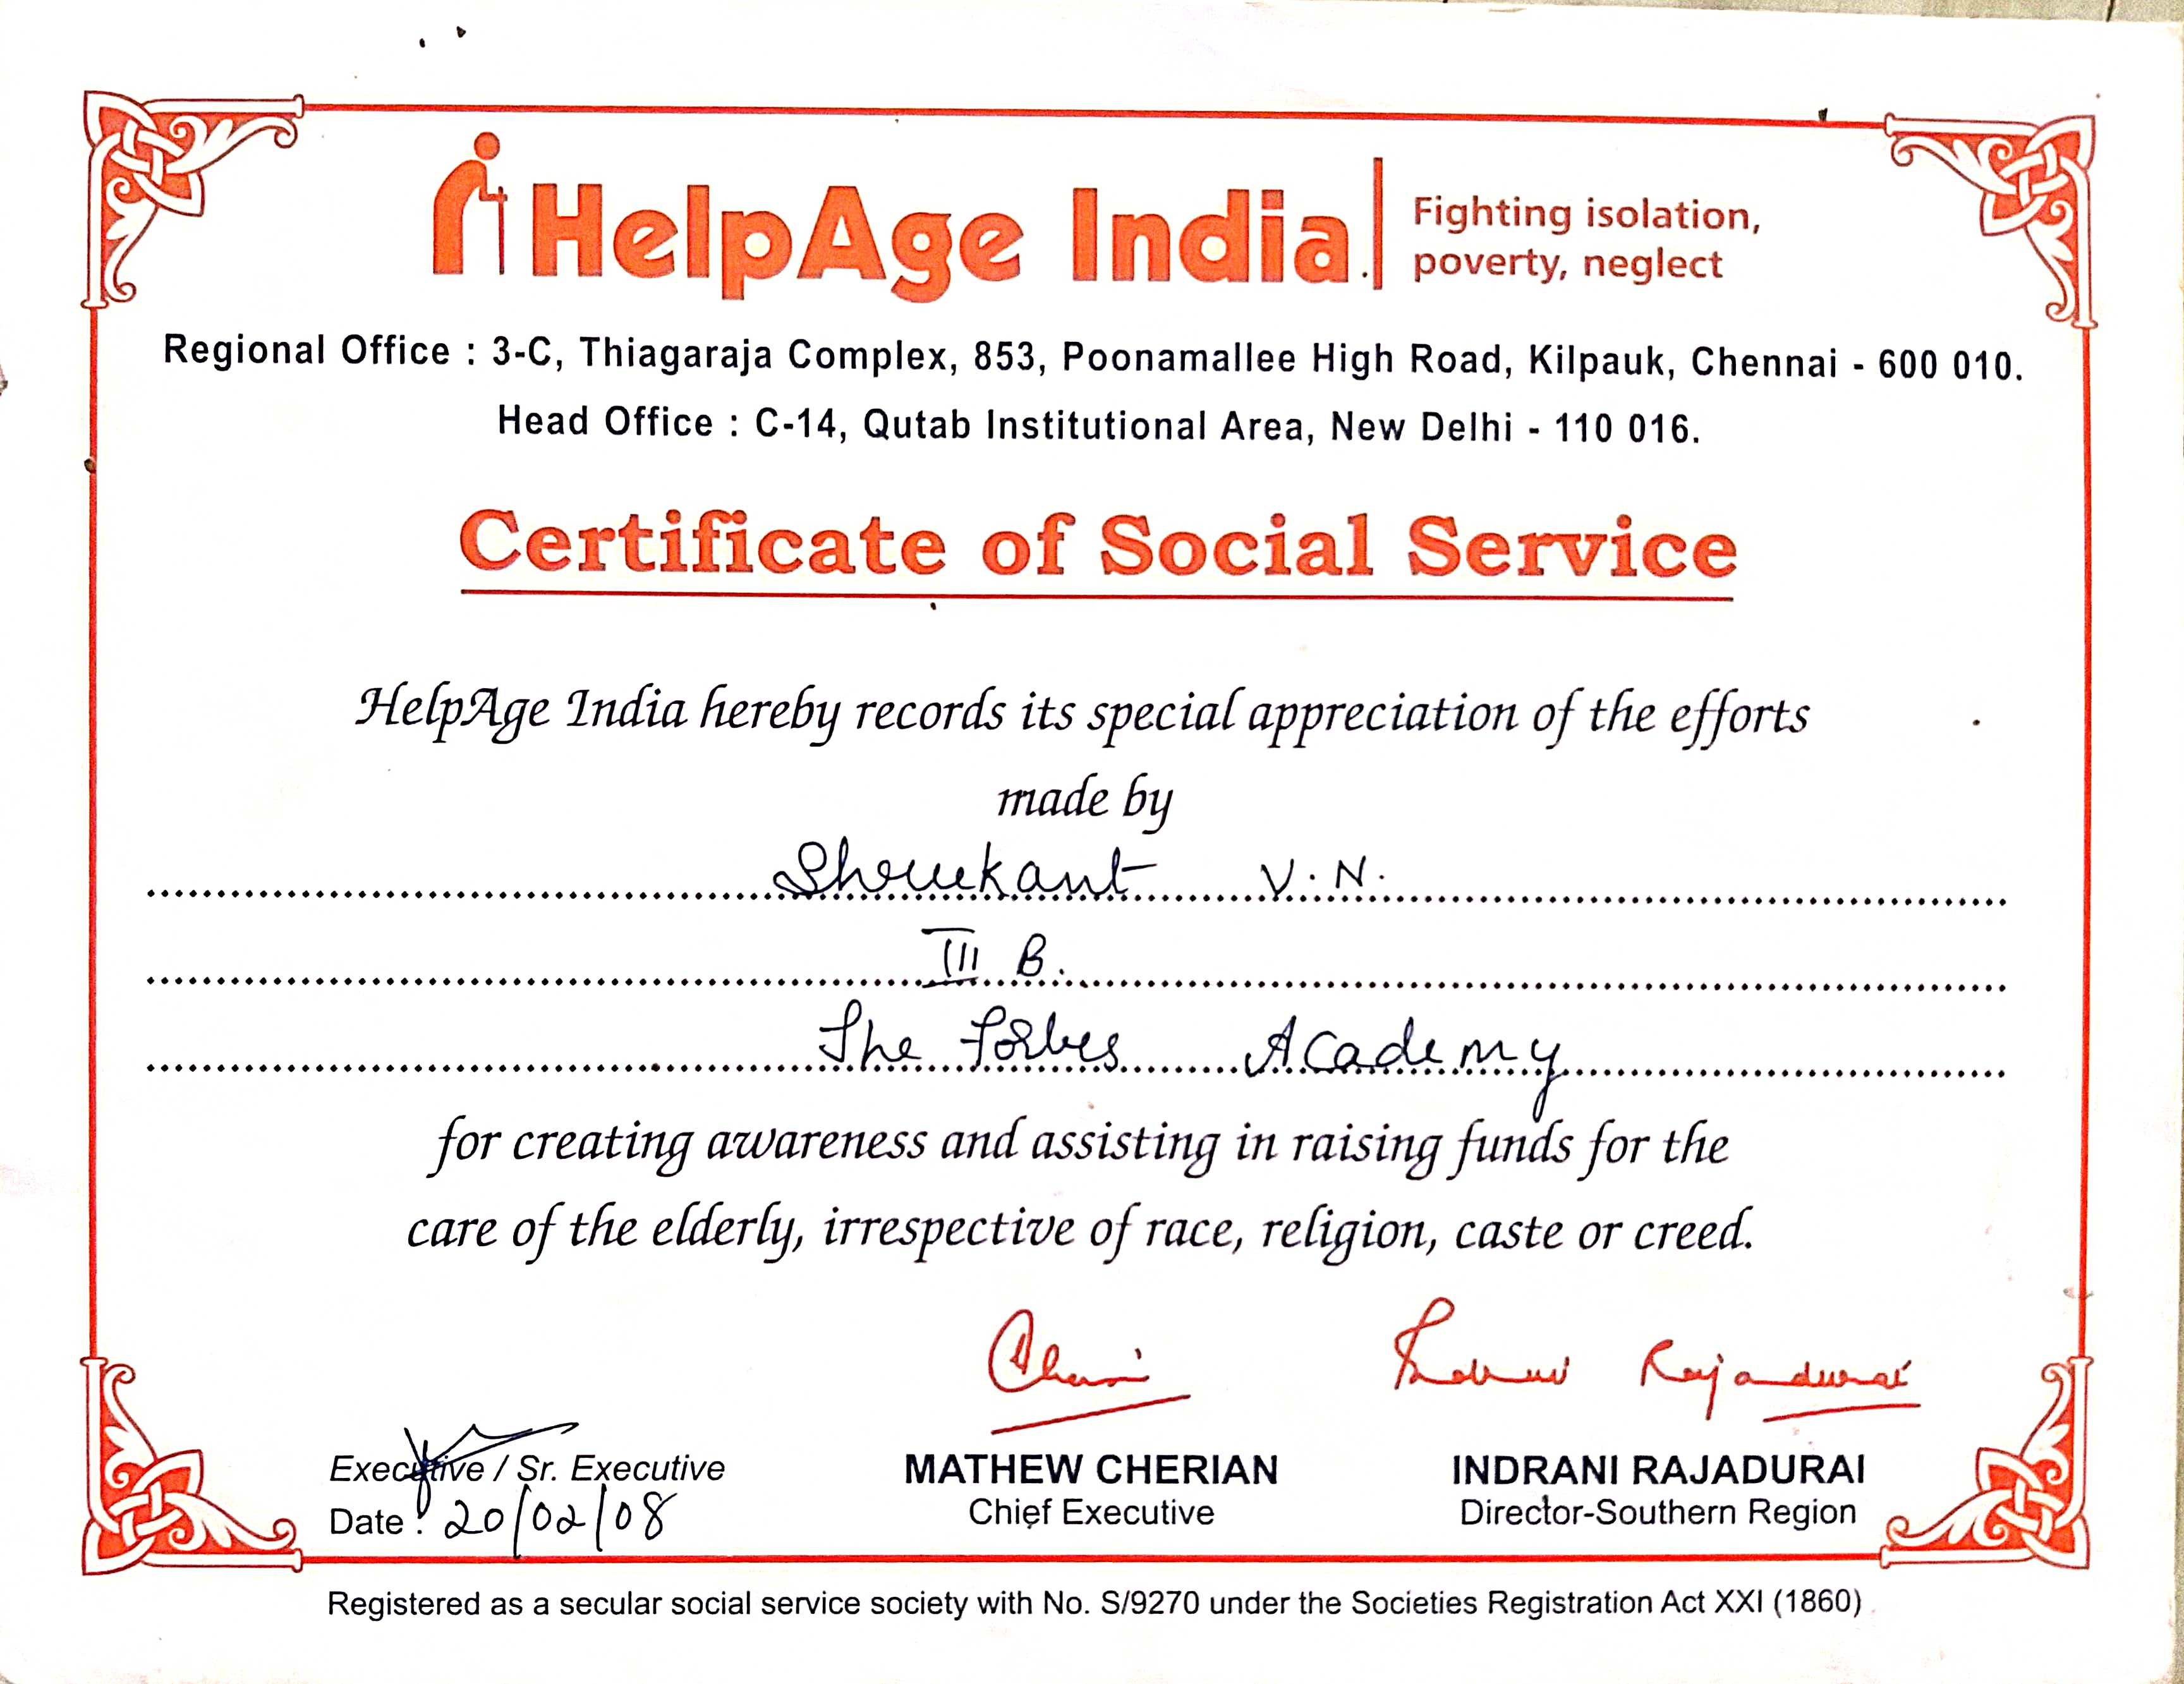 HelpAge India
Fighting isolation,
poverty, neglect
Regional Office : 3-C, Thiagaraja Complex, 853, Poonamallee High Road, Kilpauk, Chennai - 600 010.
Head Office : C-14, Qutab Institutional Area, New Delhi - 110 016.
Certificate of Social Service
HelpAge India hereby records its special appreciation of the efforts
made by
V. N.
III B.
The Forbes Academy
for creating awareness and assisting in raising funds for the
care of the elderly, irrespective of race, religion, caste or creed.
Cherian Indrani Rajadurai
Executive / Sr. Executive
Date : 20/02/08
MATHEW CHERIAN
Chief Executive
INDRANI RAJADURAI
Director-Southern Region
Registered as a secular social service society with No. S/9270 under the Societies Registration Act XXI (1860)